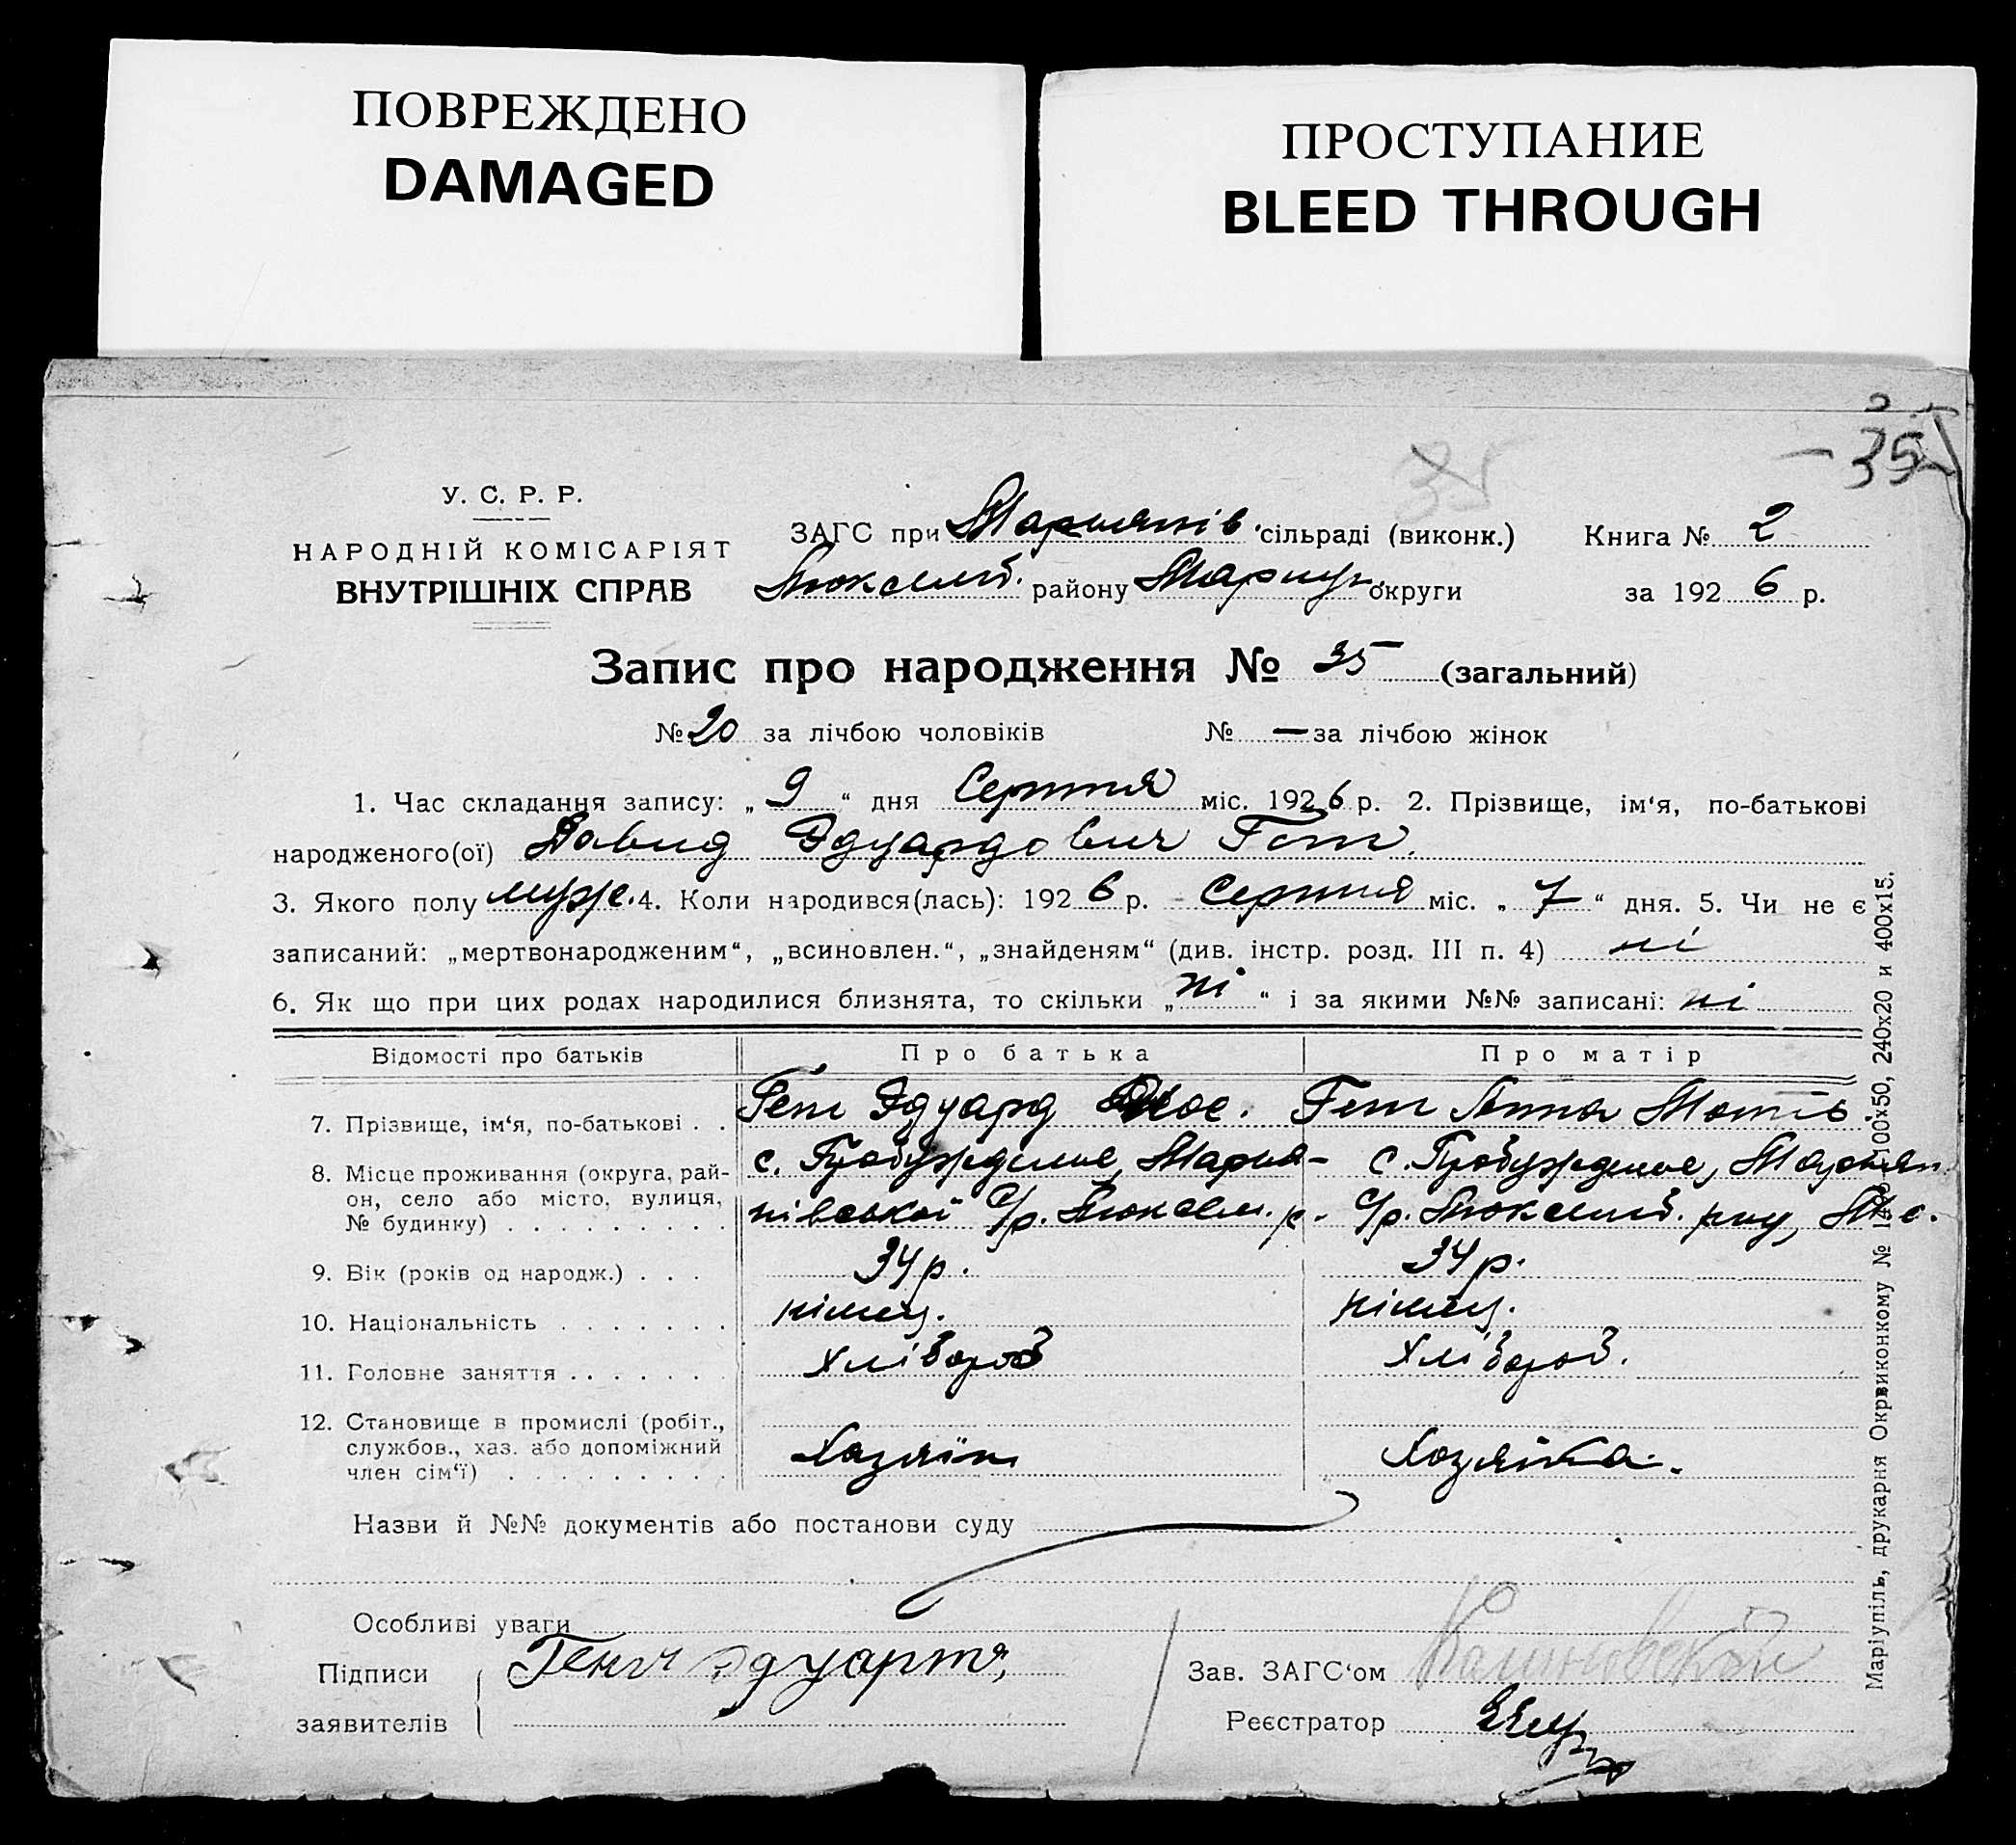 ПОВРЕЖДЕНО
DAMAGED
ПРОСТУПАНИЕ
BLEED THROUGH
35
35
У. С. Р. Р.
НАРОДНІЙ КОМІСАРІЯТ
ВНУТРІШНІХ СПРАВ
ЗАГС при Мар'янів. сільраді (виконк.) Книга № 2
Люксемб. району Маріуп. округи за 1926 р.
Запис про народження № 35 (загальний)
№ 20 за лічбою чоловіків № — за лічбою жінок
1. Час складання запису: „ 9 “ дня Серпня міс. 1926 р. 2. Прізвище, ім‘я, по-батькові
народженого(ої) Давид Эдуардович Гет.
3. Якого полу муж. 4. Коли народився(лась): 1926 р. Серпня міс. „ 7 “ дня. 5. Чи не є
записаний: „мертвонародженим“, „всиновлен.“, „знайденям“ (див. інстр. розд. III п. 4) ні
6. Як що при цих родах народилися близнята, то скільки „ ні “ і за якими №№ записані: ні
Відомості про батьків Про батька Про матір
7. Прізвище, ім‘я, по-батькові . . Гет Эдуард Гет Анна
8. Місце проживання (округа, рай-
он, село або місто, вулиця,
№ будинку) . . . . . . . . .
с. Пробуждение, Мария-
нівської С/р. Люксем. р. с. Пробуждение, Мариян.
С/р. Люксемб. рну, М. о.
9. Вік (років од народж.) . . . 34 р. 34 р.
10. Національність . . . . . . . німец. німец.
11. Головне заняття . . . . . . . Хлібороб Хлібороб.
12. Становище в промислі (робіт.,
службов., хаз. або допоміжний
член сім‘ї) . . . . . . . . . Хазяїн Хозяйка.
Назви й №№ документів або постанови суду
Особливі уваги
Підписи
заявителів
Зав. ЗАГС‘ом
Реєстратор
Маріупіль, друкарня Окрвиконкому № 100х50, 240х20 и 400х15.